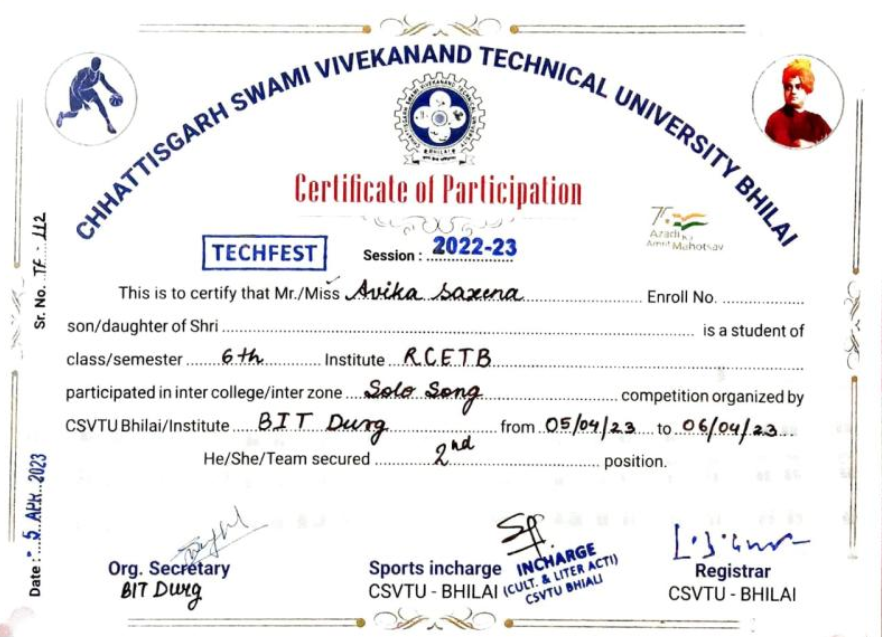 CHHATTISGARH SWAMI VIVEKANAND TECHNICAL UNIVERSITY BHILAI
CHHATTISGARH SWAMI VIVEKANAND TECHNICAL UNIVERSITY
BHILAI
Certificate of Participation
75
Azadi Ka
Amrit Mahotsav
TECHFEST
Session : 2022-23
Sr. No. TF - 112
This is to certify that Mr./Miss Avika Saxena Enroll No. ..............
son/daughter of Shri .............. is a student of
class/semester 6th Institute RCETB
participated in inter college/inter zone Solo Song competition organized by
CSVTU Bhilai/Institute BIT Durg from 05/04/23 to 06/04/23
He/She/Team secured 2nd position.
Date : 5 APR 2023
Org. Secretary
BIT Durg
Sports incharge
CSVTU - BHILAI
INCHARGE
(CULT. & LITER ACTI)
CSVTU BHIALI
Registrar
CSVTU - BHILAI